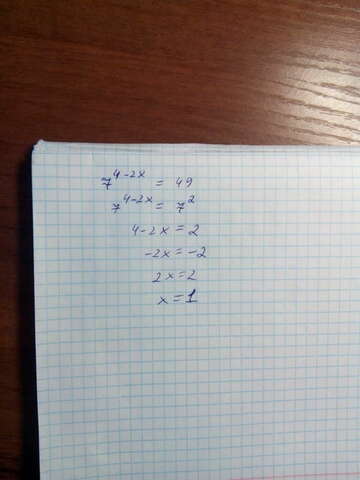 7^{4-2x} = 49
7^{4-2x} = 7^2
4-2x = 2
-2x = -2
2x = 2
x = 1